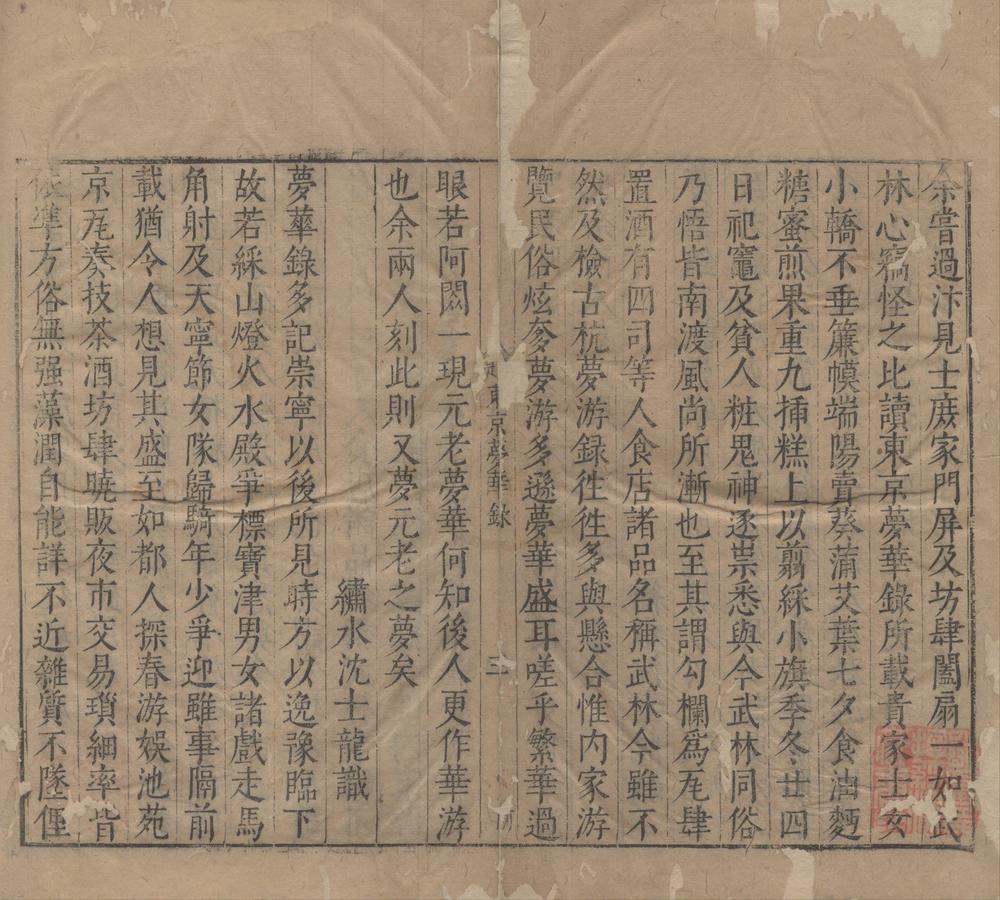 余嘗過汴見士庻家門屏及坊肆闔扇一如武
林心竊怪之比讀東京夢華錄所載貴家士女
小轎不垂簾幙端陽賣葵蒲艾葉七夕食油麪
糖蜜煎果重九揷糕上以翦綵小旗季冬廿四
日祀竈及貧人粧鬼神逐祟悉與今武林同俗
乃悟皆南渡風尚所漸也至其謂勾欄爲瓦肆
置酒有四司等人食店諸品名稱武林今雖不
然及檢古杭夢游録徃徃多與懸合惟内家游
覽民俗炫奓夢游多遜夢華盛耳嗟乎繁華過
東京夢華錄
三
眼若阿閦一現元老夢華何知後人更作華游
也余兩人刻此則又夢元老之夢矣
繡水沈士龍識
夢華錄多記崇寧以後所見時方以逸豫臨下
故若綵山燈火水殿爭標寶津男女諸戲走馬
角射及天寧節女隊歸騎年少爭迎雖事隔前
載猶令人想見其盛至如都人探春游娛池苑
京瓦奏技茶酒坊肆曉販夜市交易瑣細率皆
準方俗無强藻潤自能詳不近雜質不墜俚